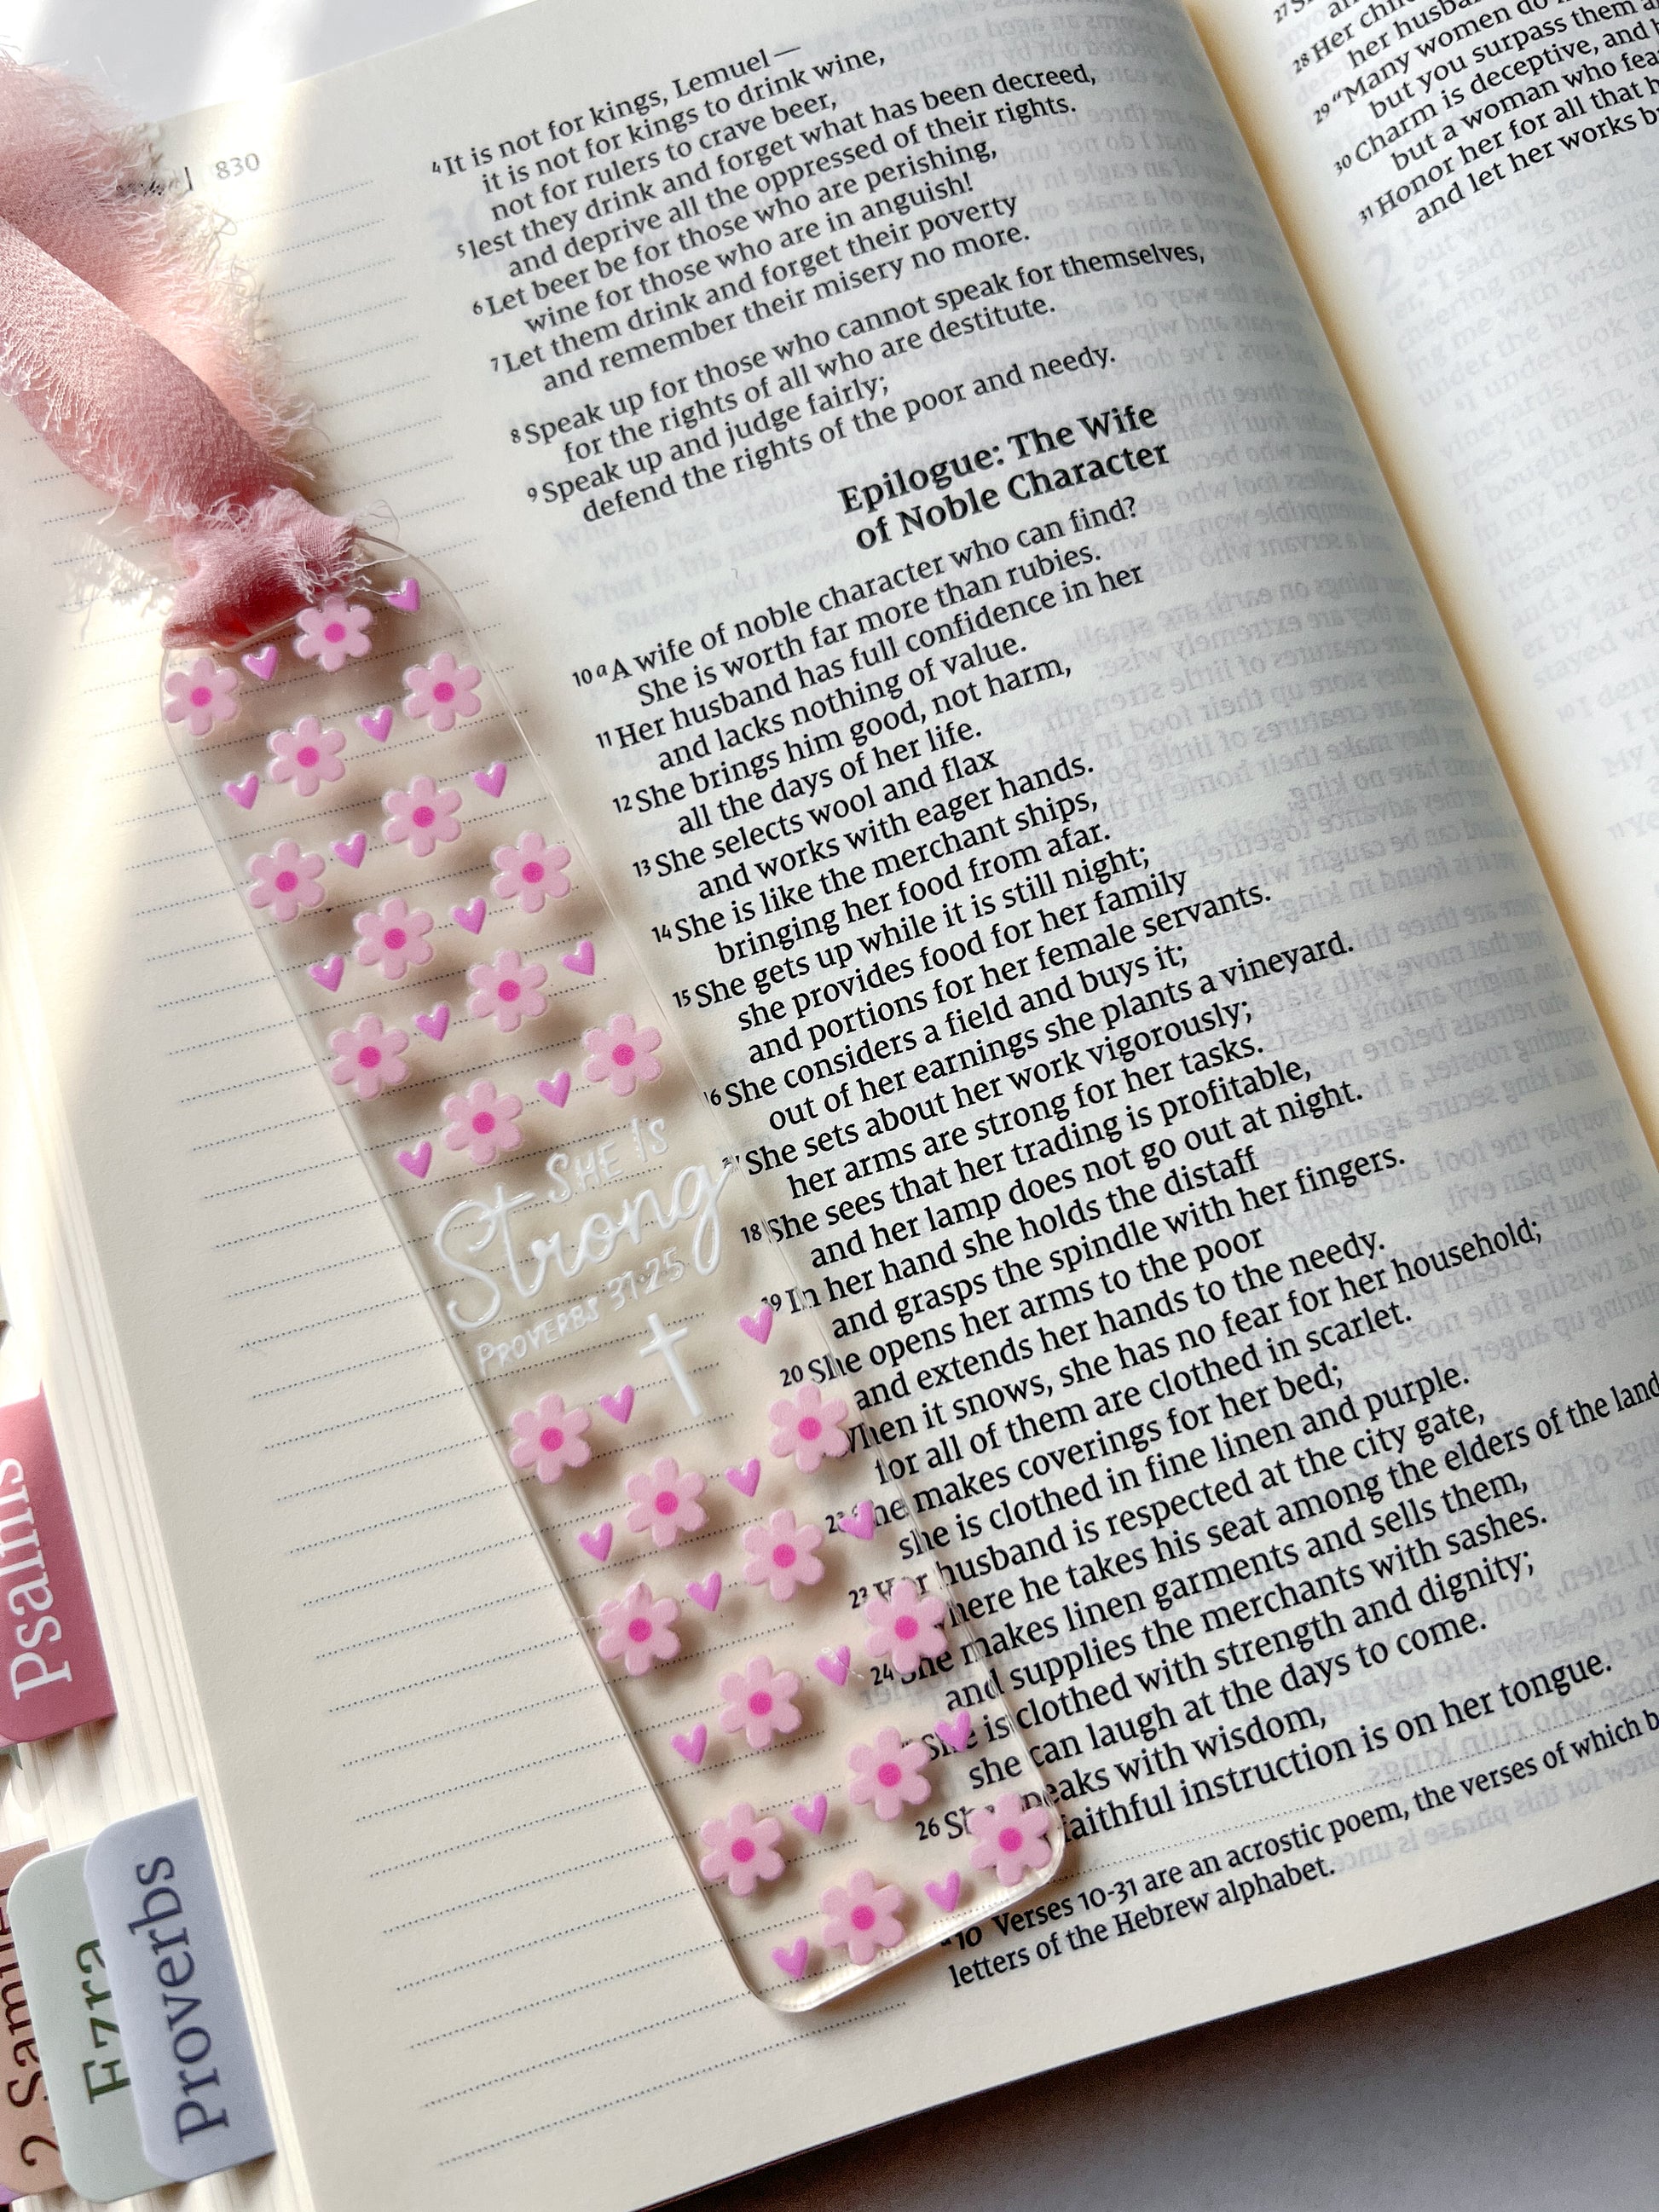 830
4 It is not for kings, Lemuel—
it is not for kings to drink wine,
not for rulers to crave beer,
5 lest they drink and forget what has been decreed,
and deprive all the oppressed of their rights.
6 Let beer be for those who are perishing,
wine for those who are in anguish!
7 Let them drink and forget their poverty
and remember their misery no more.
8 Speak up for those who cannot speak for themselves,
for the rights of all who are destitute.
9 Speak up and judge fairly;
defend the rights of the poor and needy.
Epilogue: The Wife
of Noble Character
10 a A wife of noble character who can find?
She is worth far more than rubies.
11 Her husband has full confidence in her
and lacks nothing of value.
12 She brings him good, not harm,
all the days of her life.
13 She selects wool and flax
and works with eager hands.
14 She is like the merchant ships,
bringing her food from afar.
15 She gets up while it is still night;
she provides food for her family
and portions for her female servants.
16 She considers a field and buys it;
out of her earnings she plants a vineyard.
She sets about her work vigorously;
her arms are strong for her tasks.
18 She sees that her trading is profitable,
and her lamp does not go out at night.
19 In her hand she holds the distaff
and grasps the spindle with her fingers.
20 She opens her arms to the poor
and extends her hands to the needy.
When it snows, she has no fear for her household;
for all of them are clothed in scarlet.
She makes coverings for her bed;
she is clothed in fine linen and purple.
23 Her husband is respected at the city gate,
where he takes his seat among the elders of the land
24 She makes linen garments and sells them,
and supplies the merchants with sashes.
She is clothed with strength and dignity;
she can laugh at the days to come.
26 She speaks with wisdom,
faithful instruction is on her tongue.
a 10 Verses 10-31 are an acrostic poem, the verses of which
letters of the Hebrew alphabet.
28 Her
her
29 "Many women do
but you surpass them
30 Charm is deceptive, and
but a woman who
31 Honor her for all that
and let her works
SHE IS
Strong
PROVERBS 31:25
Psalms
2 Samuel
Ezra
Proverbs